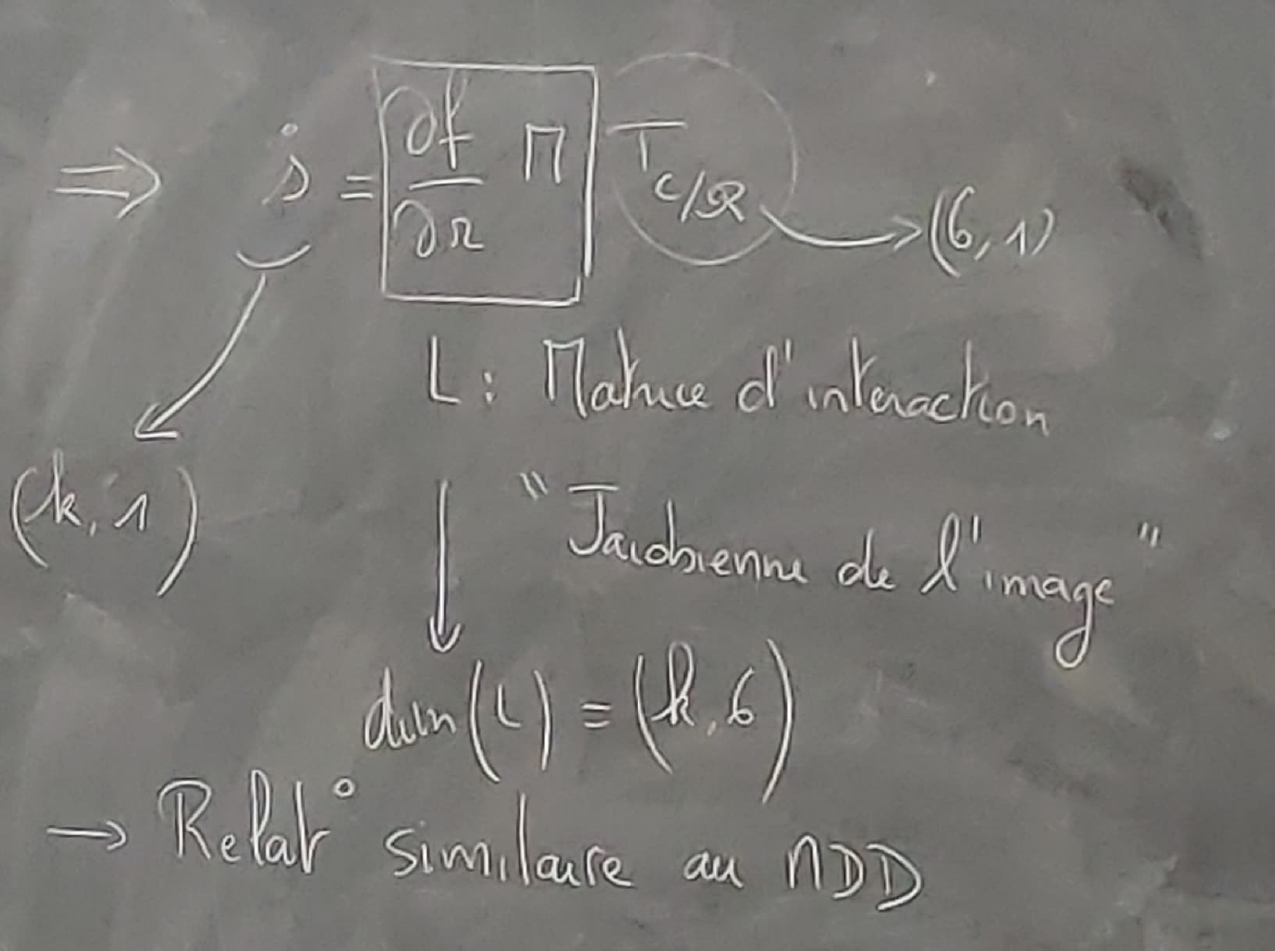 ⇒ ṡ = ∂f/∂r M T_{C/R} → (6,1)
(k,1)
L : Matrice d'interaction
"Jacobienne de l'image"
dim(L) = (k,6)
→ Relat° similaire au MDD